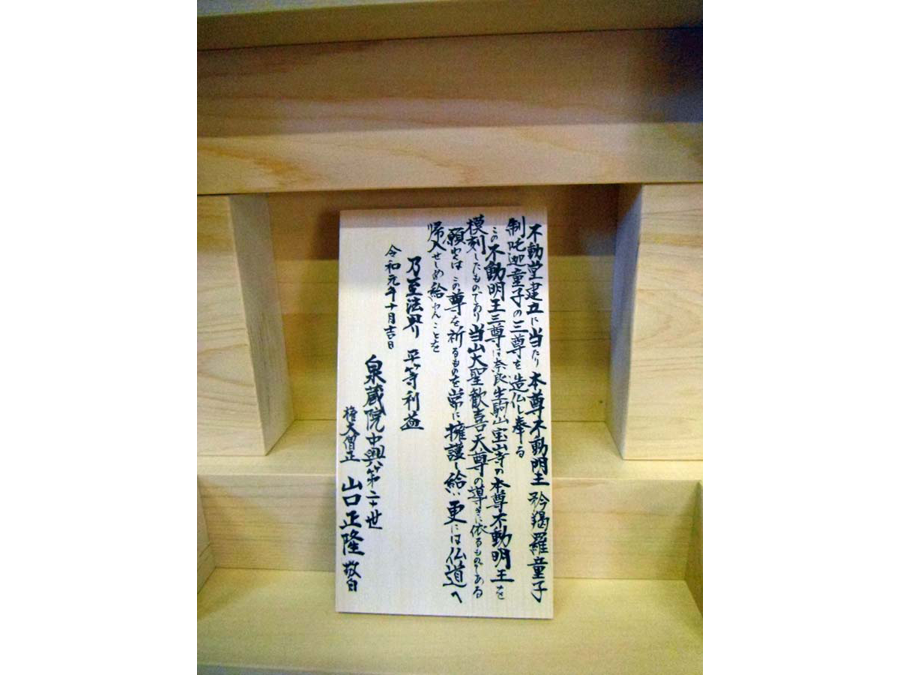 不動堂建立に当たり 本尊不動明王 矜羯羅童子
制吒迦童子の三尊を造仏し奉る
この不動明王三尊は奈良生駒山宝山寺の本尊不動明王を
模刻したものであり当山大聖歓喜天尊の導きに依るものである
願わくはこの尊を祈るものを常に擁護し給い更には仏道へ
帰入せしめ給わんことを
乃至法界 平等利益
令和元年十月吉日
泉蔵院中興第二十世
権大僧正 山口正隆 敬白